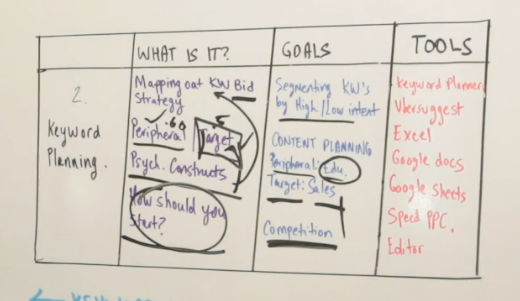 WHAT IS IT?
GOALS
TOOLS
2.
Keyword
Planning.
Mapping out KW Bid
Strategy
.60
Peripheral
Target
Psych. Constructs
How should you
Start?
Segmenting KW's
by High/Low intent
CONTENT PLANNING
Peripheral: Edu.
Target: Sales
Competition
Keyword Planner
Ubersuggest
Excel
Google docs
Google Sheets
Speed PPC,
Editor